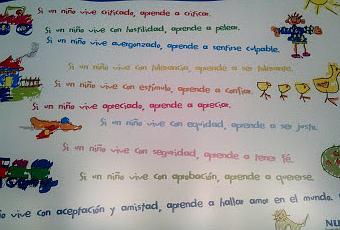 Si un niño vive criticado, aprende a criticar.
Si un niño vive con hostilidad, aprende a pelear.
Si un niño vive avergonzado, aprende a sentirse culpable.
Si un niño vive con tolerancia, aprende a ser tolerante.
Si un niño vive con estímulo, aprende a confiar.
Si un niño vive apreciado, aprende a apreciar.
Si un niño vive con equidad, aprende a ser justo.
Si un niño vive con seguridad, aprende a tener fé.
Si un niño vive con aprobación, aprende a quererse.
vive con aceptación y amistad, aprende a hallar amor en el mundo.